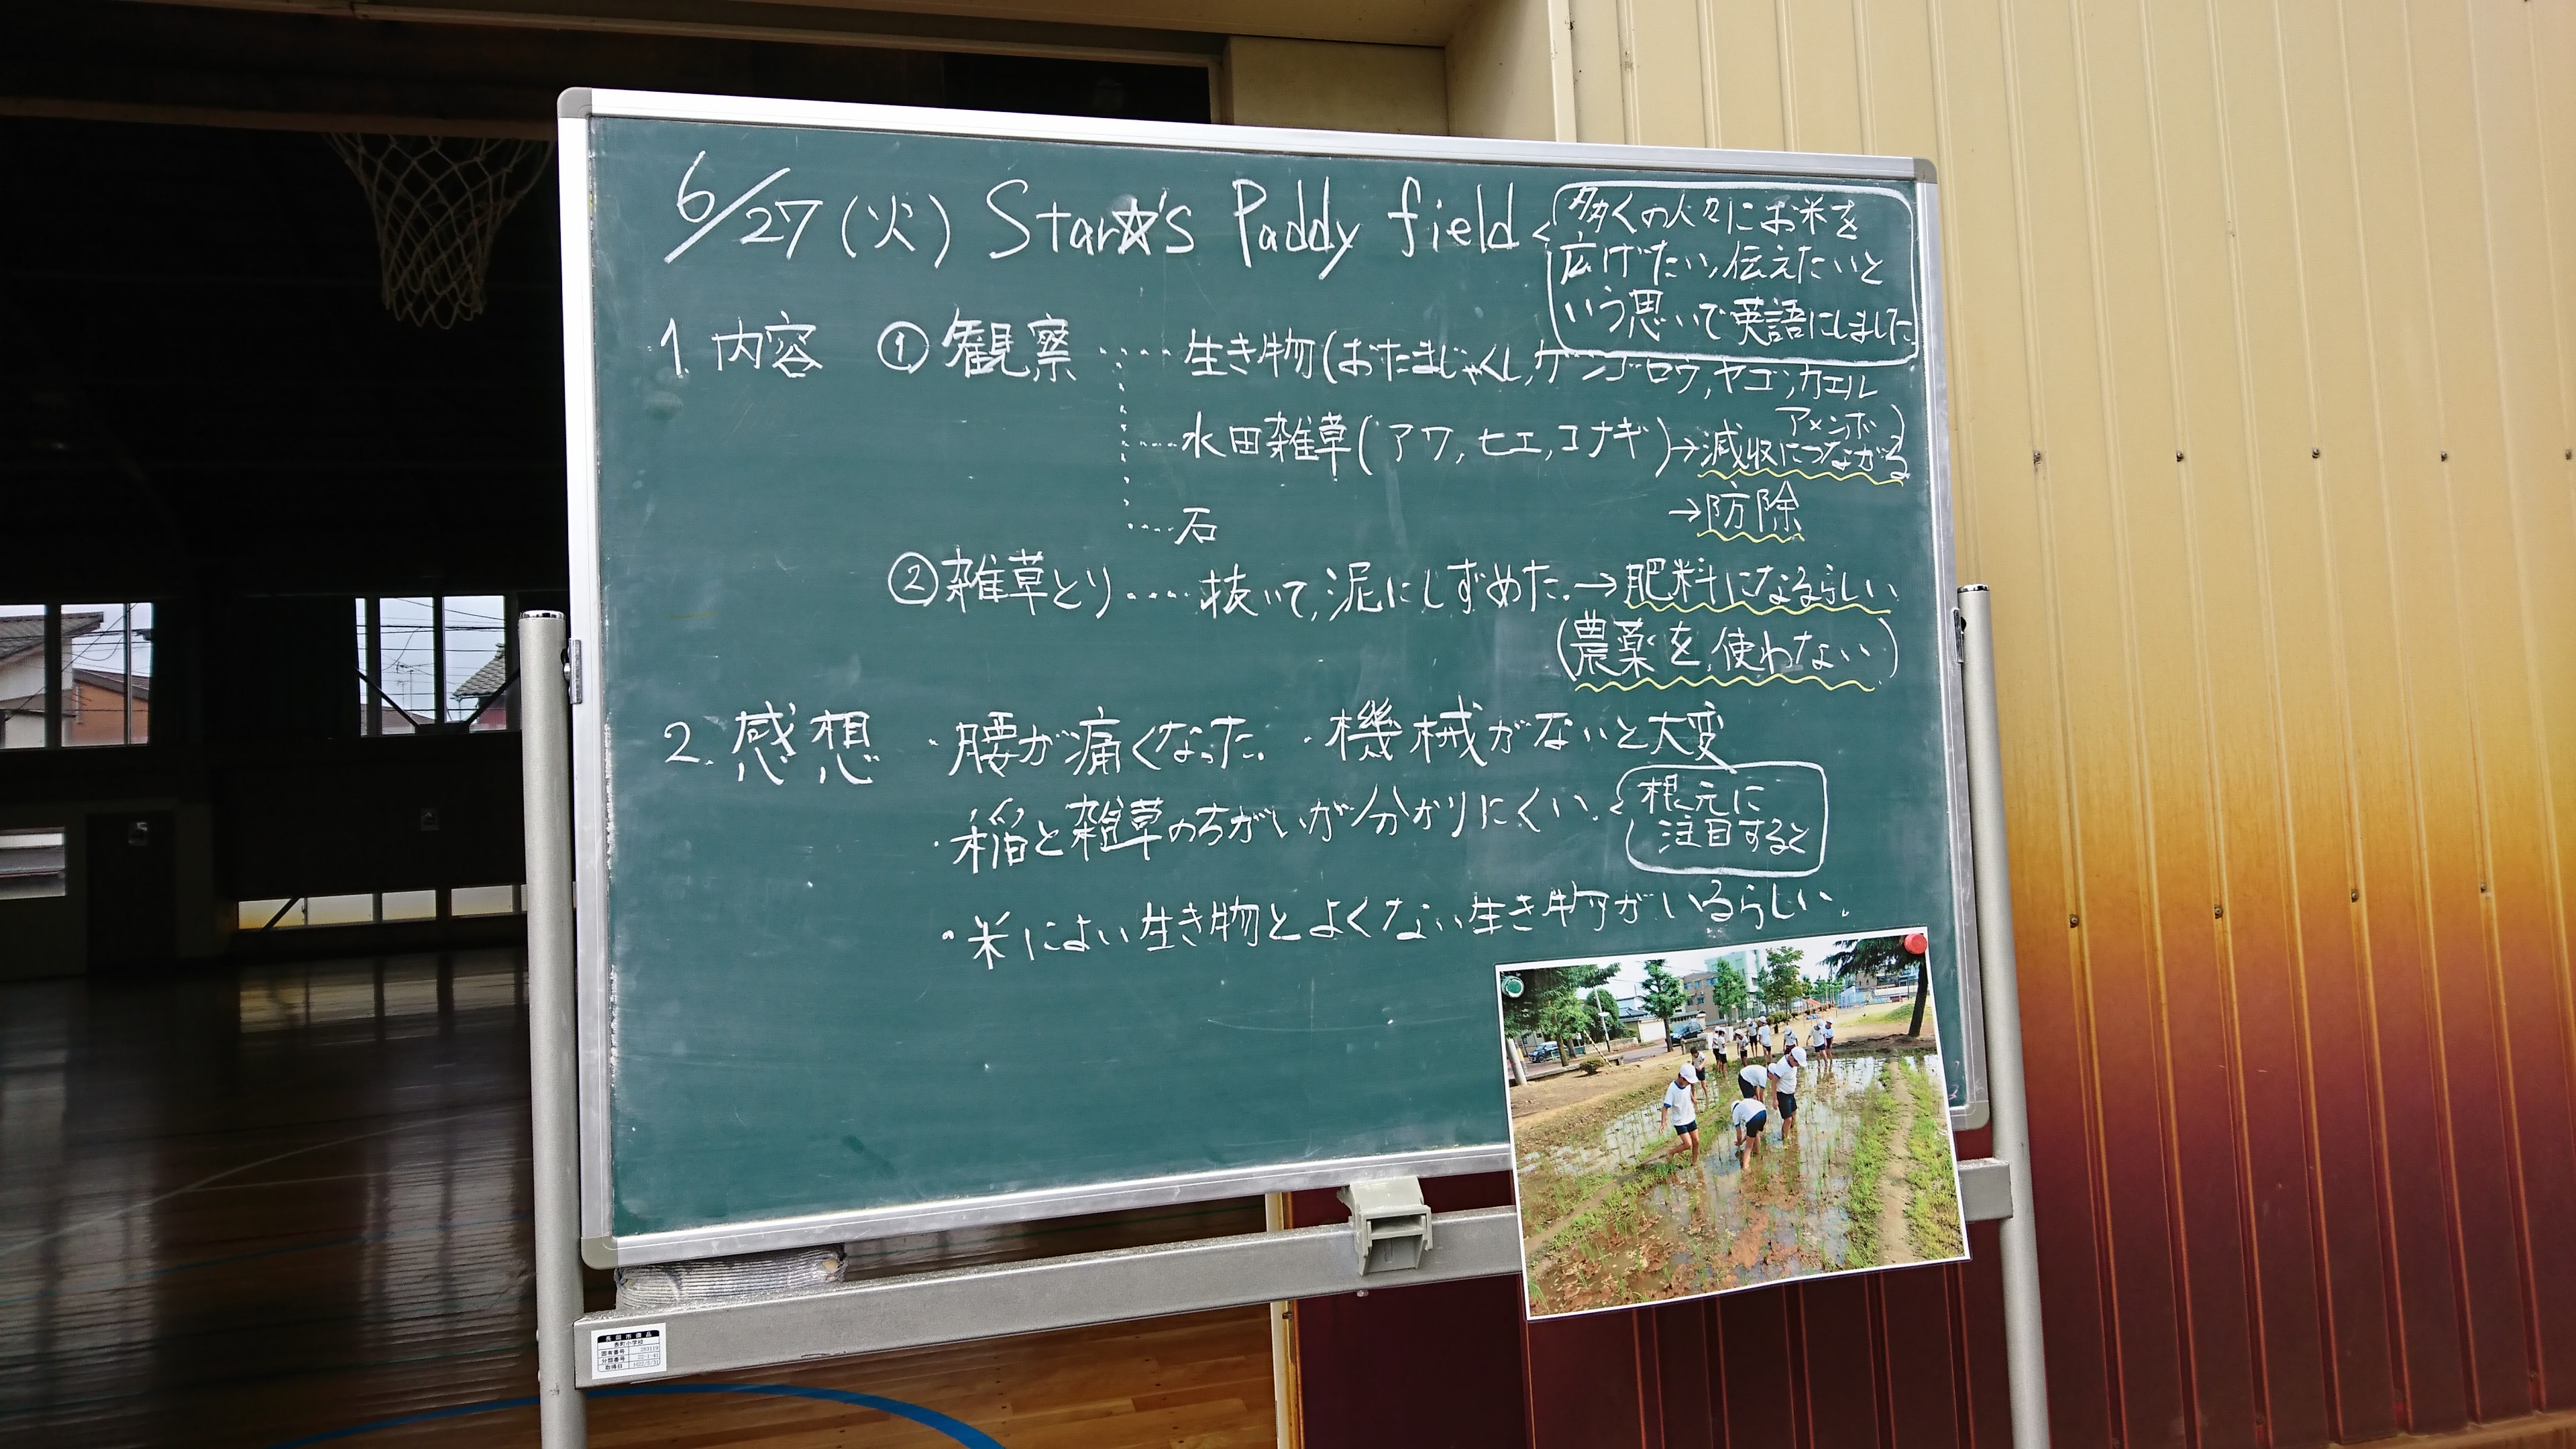 6/27(火) Star☆'s Paddy field
多くの人々にお米を
広げたい、伝えたいと
いう思いで英語にしました
1. 内容 ①観察 ‥‥ 生き物(おたまじゃくし,ゲンゴロウ,ヤゴ,カエル
アメンボ)
‥‥水田雑草(アワ,ヒエ,コナギ)→減収につながる
‥‥石 →防除
②雑草とり‥‥抜いて,泥にしずめた.→肥料になるらしい
(農薬を使わない)
2. 感想 ・腰が痛くなった。・機械がないと大変
・稲と雑草のちがいが分かりにくい.
根元に
注目すると
・米によい生き物とよくない生き物がいるらしい.
長岡市備品
表町小学校
固有番号
分類番号
取得日